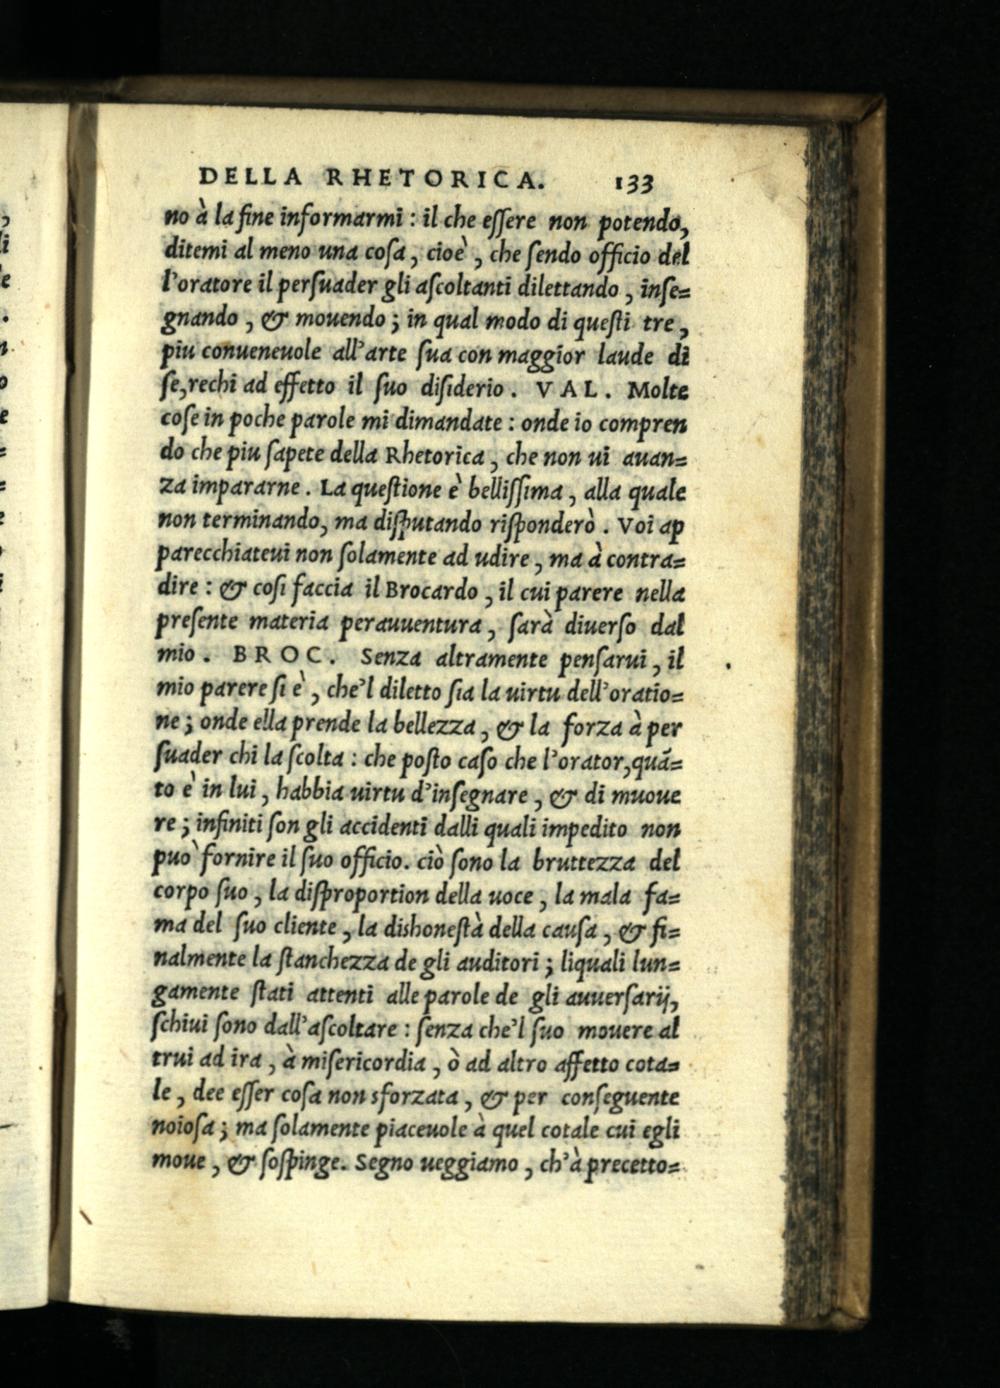 DELLA RHETORICA. 133
no à la fine informarmi : il che eſſere non potendo,
ditemi al meno una coſa, cioè, che ſendo officio del
l'oratore il perſuader gli aſcoltanti dilettando, inſe=
gnando, & mouendo; in qual modo di queſti tre,
piu conueneuole all'arte ſua con maggior laude di
ſe, rechi ad effetto il ſuo diſiderio. VAL. Molte
coſe in poche parole mi dimandate : onde io compren
do che piu ſapete della Rhetorica, che non ui auan=
za impararne. La queſtione è belliſſima, alla quale
non terminando, ma diſputando riſponderò. Voi ap
parecchiateui non ſolamente ad udire, ma à contra=
dire : & coſi faccia il Brocardo, il cui parere nella
preſente materia perauuentura, ſarà diuerſo dal
mio. BROC. Senza altramente penſarui, il
mio parere ſi è, che'l diletto ſia la uirtu dell'oratio=
ne; onde ella prende la bellezza, & la forza à per
ſuader chi la ſcolta : che poſto caſo che l'orator, quã=
to è in lui, habbia uirtu d'inſegnare, & di muoue
re; infiniti ſon gli accidenti dalli quali impedito non
può fornire il ſuo officio. ciò ſono la bruttezza del
corpo ſuo, la diſproportion della uoce, la mala fa=
ma del ſuo cliente, la dishoneſtà della cauſa, & fi=
nalmente la ſtanchezza de gli auditori; liquali lun=
gamente ſtati attenti alle parole de gli auuerſarij,
ſchiui ſono dall'aſcoltare : ſenza che'l ſuo mouere al
trui ad ira, à miſericordia, ò ad altro affetto cota=
le, dee eſſer coſa non sforzata, & per conſeguente
noioſa; ma ſolamente piaceuole à quel cotale cui egli
moue, & ſoſpinge. Segno ueggiamo, ch'à precetto=